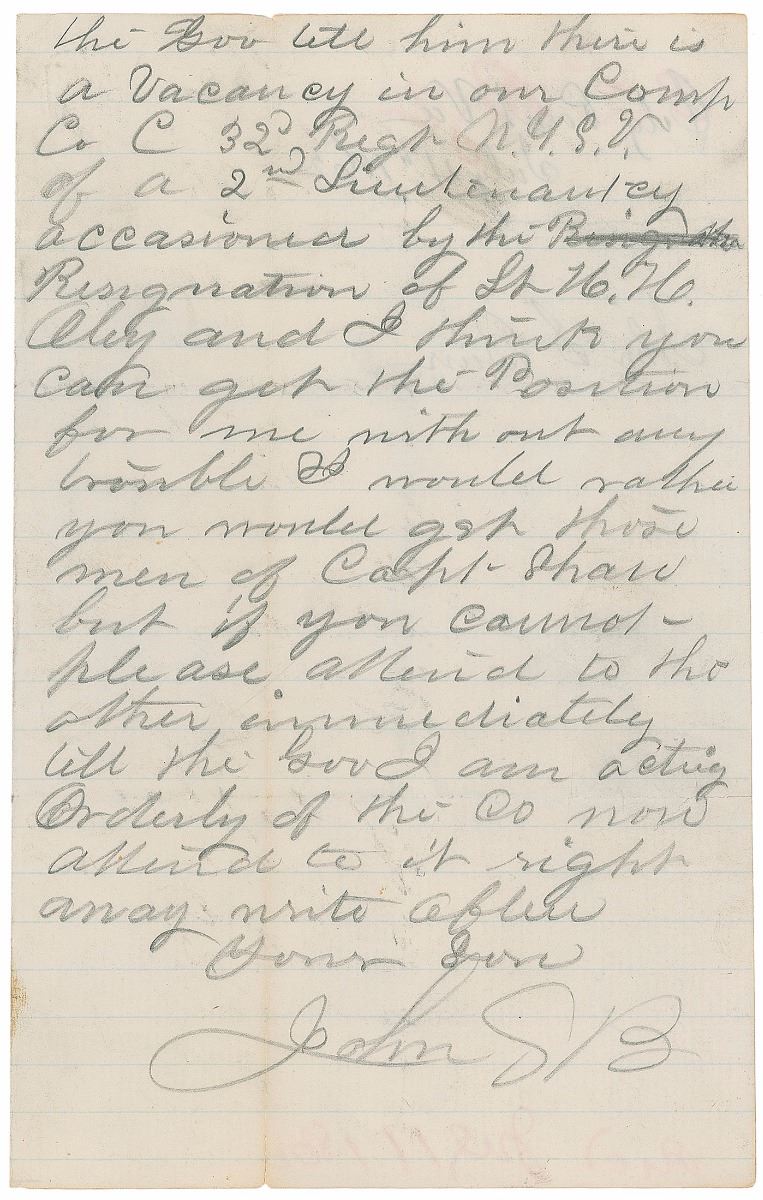 the Gov tell him there is
a Vacancy in our Comp
Co C 32d Regt N.Y.S.V.
of a 2nd Lieutenantcy
accasioned by the
Resignation of Lt H. H.
Oley and I think you
can get the Position
for me with out any
trouble I would rather
you would get those
men of Capt Shaw
but if you cannot
please attend to the
other immediately
tell the Gov I am acting
Orderly of the Co now
attend to it right
away write often
Your Son
John S B